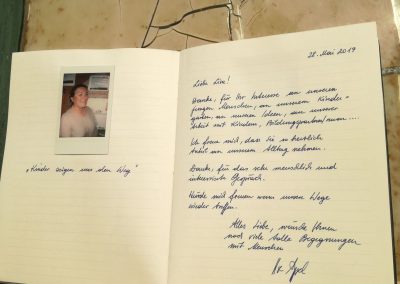 "Kinder zeigen uns den Weg"
28. Mai 2019
Liebe Live!
Danke, für Ihr Interesse an unseren
jungen Menschen, an unserem Kinder-
garten, an unseren Ideen, an unser
Arbeit mit Kindern, Bildungspartner/innen....
Ich freue mich, dass Sie unterstützten
Anteil an unserem Alltag nehmen.
Danke, für das sehr menschliche und
interessante Gespräch.
Würde mich freuen wenn unsere Wege
wieder treffen.
Alles Liebe, wünsche Ihnen
noch viele tolle Begegnungen
mit Menschen